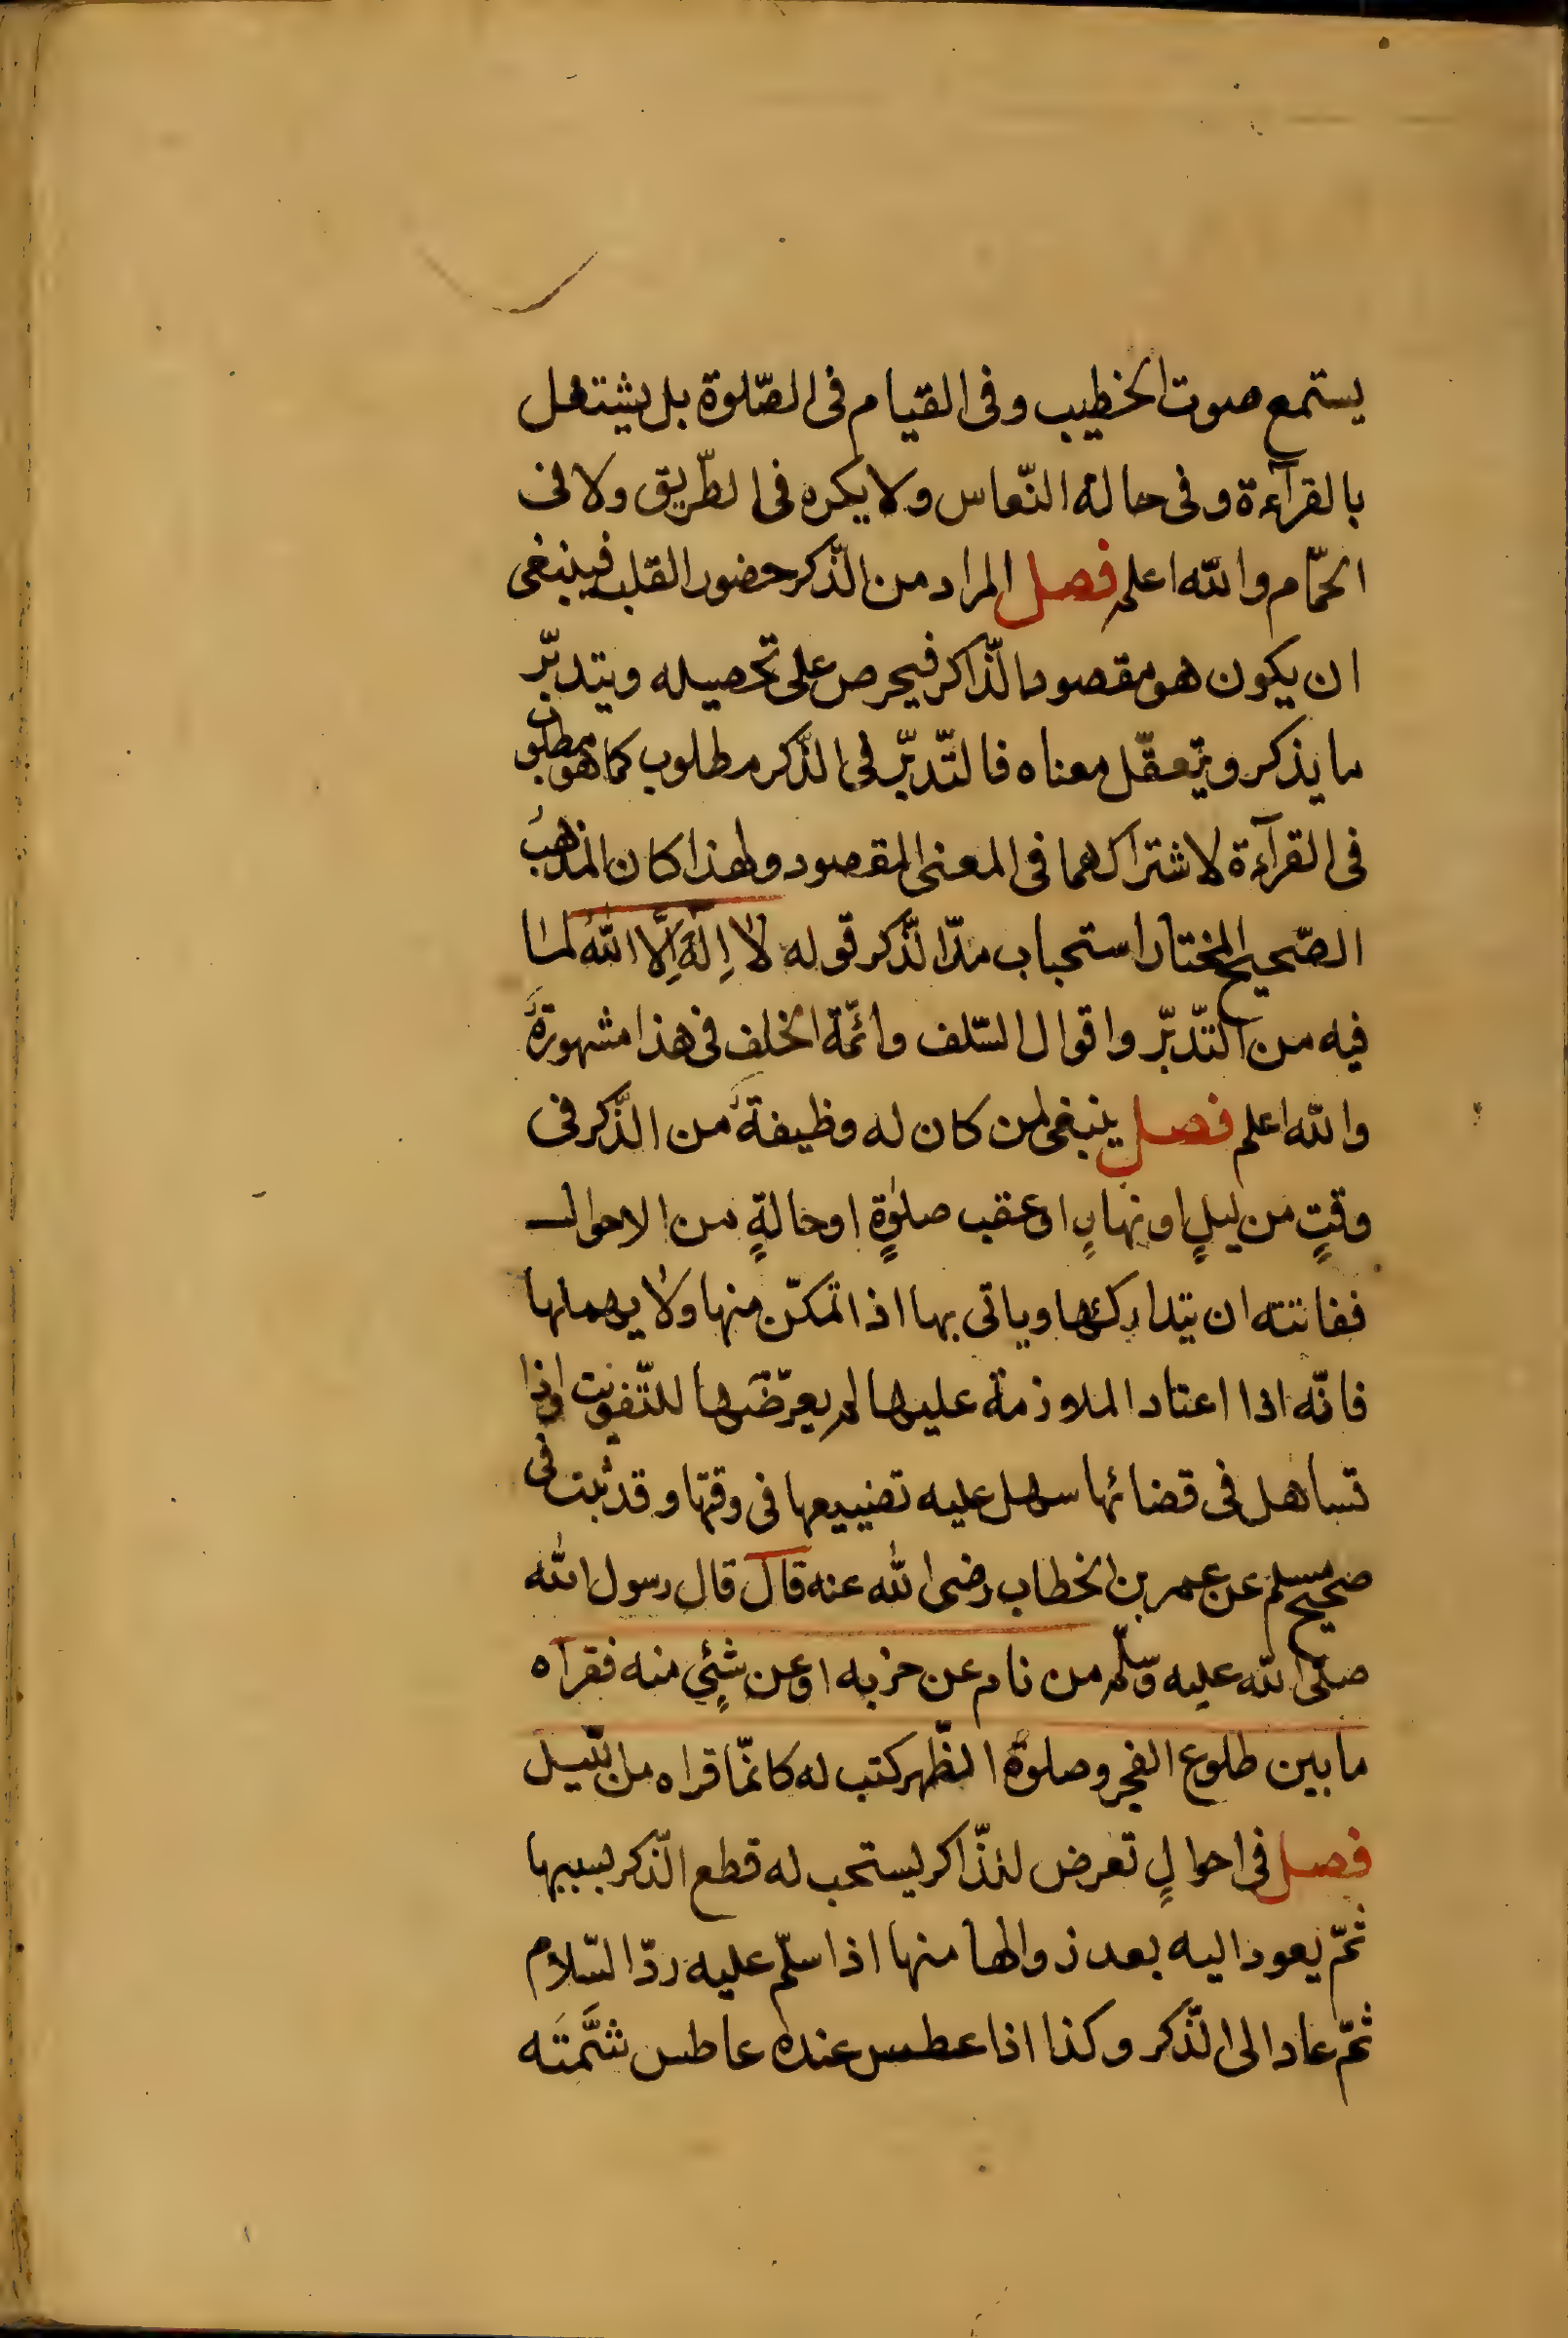 يستمع صوت الخطيب وفى القيام فى الصّلوة بل يشتغل
بالقرآءة وفى حالة النّعاس ولا يكره فى الطّريق ولا فى
الحمّام والله اعلم فصل المراد من الذّكر حضور القلب فينبغى
ان يكون هو مقصود الذّاكر فيحرص على تحصيله ويتدبّر
ما يذكر ويتعقّل معناه فالتّدبّر فى الذّكر مطلوب كما هو مطلوب
فى القرآءة لاشتراكهما فى المعنى المقصود ولهذا كان المذهبُ
الصّحيح المختار استحباب مدّ الذّكر قوله لا اِلٰهَ اِلَّا اللهُ لما
فيه من التّدبّر واقوال السّلف وائمّة الخلف فى هذا مشهورةٌ
والله اعلم فصل ينبغى لمن كان له وظيفةٌ من الذّكر فى
وقتٍ من ليلٍ او نهارٍ او عقب صلوةٍ او حالةٍ من الاحوال
ففاتته ان يتداركها وياتى بها اذا تمكّن منها ولا يهملها
فانّه اذا اعتاد الملازمة عليها لم يعرّضها للتّفويت واذا
تساهل فى قضائها سهل عليه تضييعها فى وقتها وقد ثبت فى
صحيح مسلم عن عمر بن الخطاب رضى الله عنه قال قال رسول الله
صلّى الله عليه وسلّم من نام عن حزبه او عن شئٍ منه فقرآه
ما بين طلوع الفجر وصلوة الظّهر كتب له كانّما قراه من اللّيل
فصل فى احوالٍ تعرض للذّاكر يستحب له قطع الذّكر بسببها
ثمّ يعود اليه بعد زوالها منها اذا سلّم عليه ردّ السّلام
ثمّ عاد الى الذّكر وكذا اذا عطس عنده عاطس شَمَّتَه